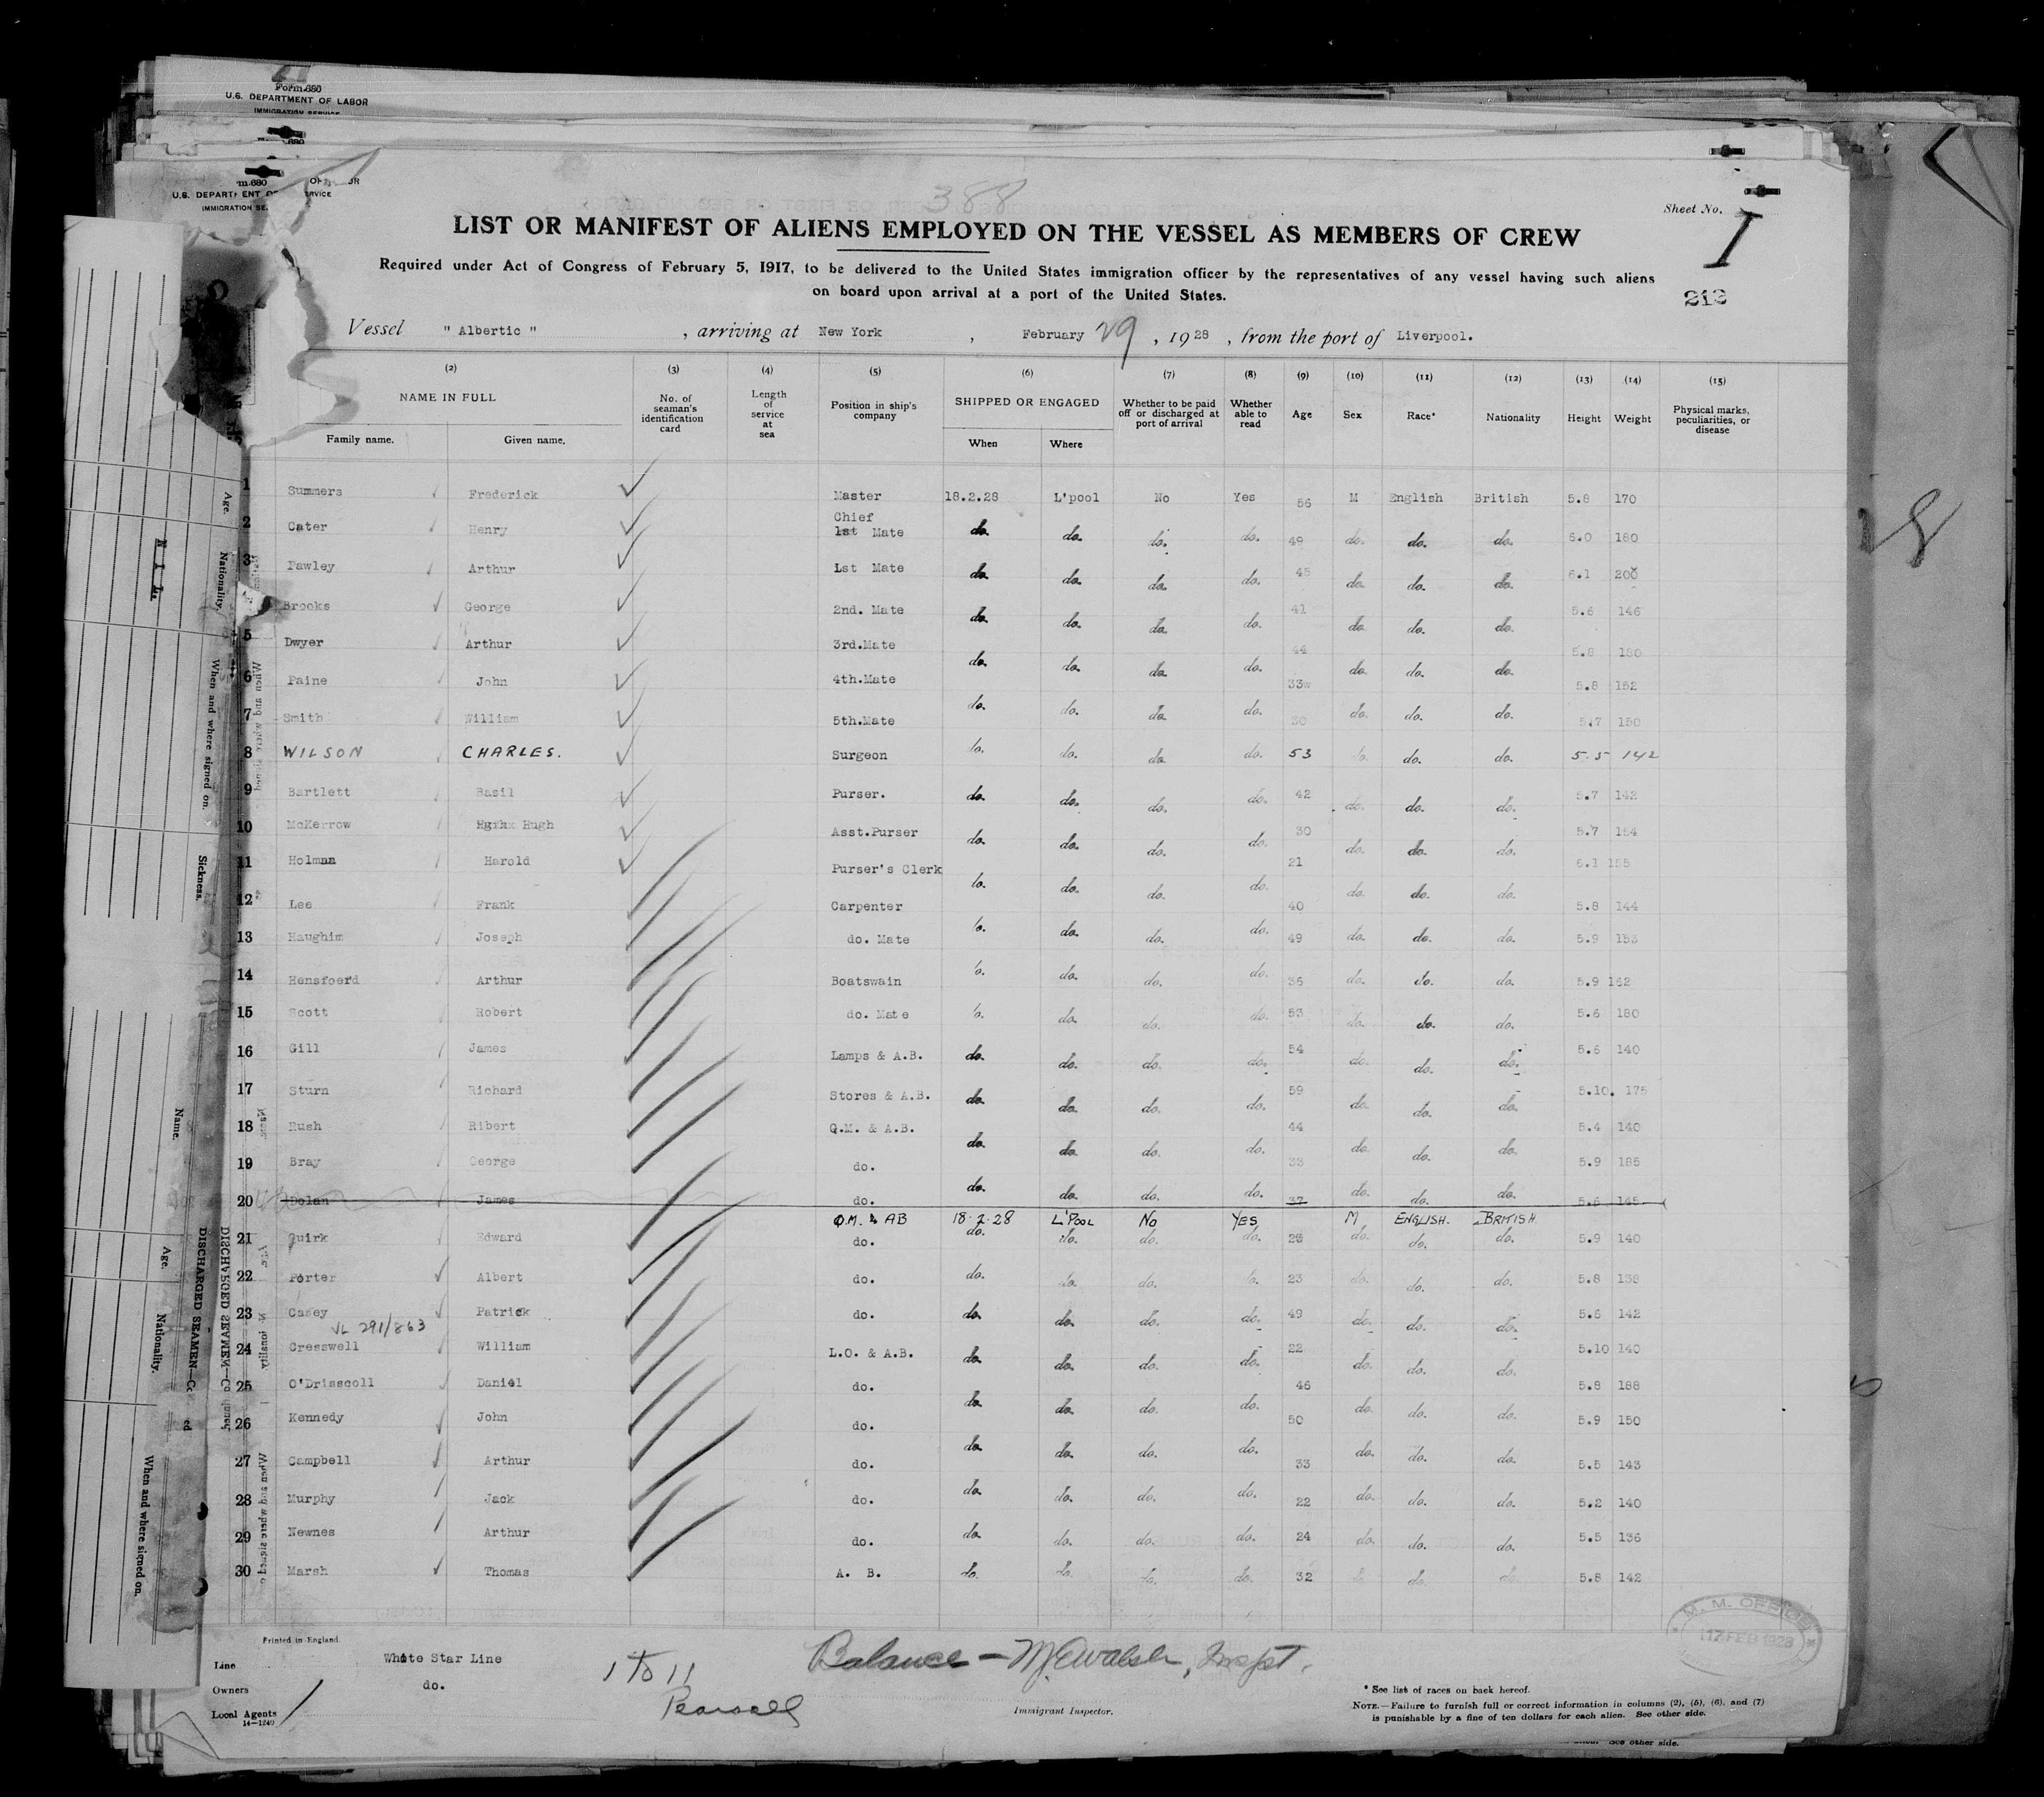 Form 680
U.S. DEPARTMENT OF LABOR
IMMIGRATION SERVICE
388
Sheet No. I
LIST OR MANIFEST OF ALIENS EMPLOYED ON THE VESSEL AS MEMBERS OF CREW
Required under Act of Congress of February 5, 1917, to be delivered to the United States immigration officer by the representatives of any vessel having such aliens
on board upon arrival at a port of the United States.
212
Vessel " Albertic " , arriving at New York , February 29 , 1928 , from the port of Liverpool.
(2) (3) (4) (5) (6) (7) (8) (9) (10) (11) (12) (13) (14) (15)
NAME IN FULL No. of seaman's identification card Length of service at sea Position in ship's company SHIPPED OR ENGAGED Whether to be paid off or discharged at port of arrival Whether able to read Age Sex Race* Nationality Height Weight Physical marks, peculiarities, or disease
Family name. Given name. When Where
1 Summers Frederick Master 18.2.28 L'pool No Yes 56 M English British 5.8 170
2 Cater Henry Chief 1st Mate do. do. do. do. 49 do. do. do. 6.0 180
3 Pawley Arthur 1st Mate do. do. do. do. 45 do. do. do. 6.1 200
Brooks George 2nd. Mate do. do. do. do. 41 do. do. do. 5.6 146
5 Dwyer Arthur 3rd.Mate do. do. do. do. 44 do. do. do. 5.8 180
6 Paine John 4th.Mate do. do. do. do. 33 do. do. do. 5.8 152
7 Smith William 5th.Mate do. do. do. do. 30 do. do. do. 5.7 150
8 WILSON CHARLES. Surgeon do. do. do. do. 53 do. do. do. 5.5 142
9 Bartlett Basil Purser. do. do. do. do. 42 do. do. do. 5.7 142
10 McKerrow Hugh Asst.Purser do. do. do. do. 30 do. do. do. 5.7 154
11 Holman Harold Purser's Clerk do. do. do. do. 21 do. do. do. 6.1 155
12 Lee Frank Carpenter do. do. do. do. 40 do. do. do. 5.8 144
13 Haughim Joseph do. Mate do. do. do. do. 49 do. do. do. 5.9 153
14 Hensfoerd Arthur Boatswain do. do. do. do. 36 do. do. do. 5.9 162
15 Scott Robert do. Mate do. do. do. do. 53 do. do. do. 5.6 180
16 Gill James Lamps & A.B. do. do. do. do. 54 do. do. do. 5.6 140
17 Sturn Richard Stores & A.B. do. do. do. do. 59 do. do. do. 5.10. 175
18 Rush Ribert Q.M. & A.B. do. do. do. do. 44 do. do. do. 5.4 140
19 Bray George do. do. do. do. do. 33 do. do. do. 5.9 185
20 Dolan James do. do. do. do. do. 37 do. do. do. 5.6 165
Q.M. & AB 18.2.28 L'POOL NO YES M ENGLISH. BRITISH
21 Quirk Edward do. do. do. do. do. do. do. do. 5.9 140
22 Porter Albert do. do. do. do. do. 23 do. do. do. 5.8 138
23 Casey Patrick do. do. do. do. do. 49 do. do. do. 5.6 142
VL 291/863
24 Cresswell William L.O. & A.B. do. do. do. do. 22 do. do. do. 5.10 140
25 O'Drisscoll Daniel do. do. do. do. do. 46 do. do. do. 5.8 188
26 Kennedy John do. do. do. do. do. 50 do. do. do. 5.9 150
27 Campbell Arthur do. do. do. do. do. 33 do. do. do. 5.5 143
28 Murphy Jack do. do. do. do. do. 22 do. do. do. 5.2 140
29 Newnes Arthur do. do. do. do. do. 24 do. do. do. 5.5 136
30 Marsh Thomas A. B. do. do. do. do. 32 do. do. do. 5.8 142
Printed in England.
Line White Star Line
Owners do.
Local Agents
14-1240
1 to 11
Pearsall
Balance - M.J.Ewalsh, Inspt.
Immigrant Inspector.
M. M. OFFICE
17 FEB 1928
* See list of races on back hereof.
NOTE.—Failure to furnish full or correct information in columns (2), (5), (6), and (7)
is punishable by a fine of ten dollars for each alien. See other side.
See other side.
Age. Nationality. When and where signed on. Sickness.
N I L.
Name. Age. Nationality. When and where signed on.
DISCHARGED SEAMEN—Co